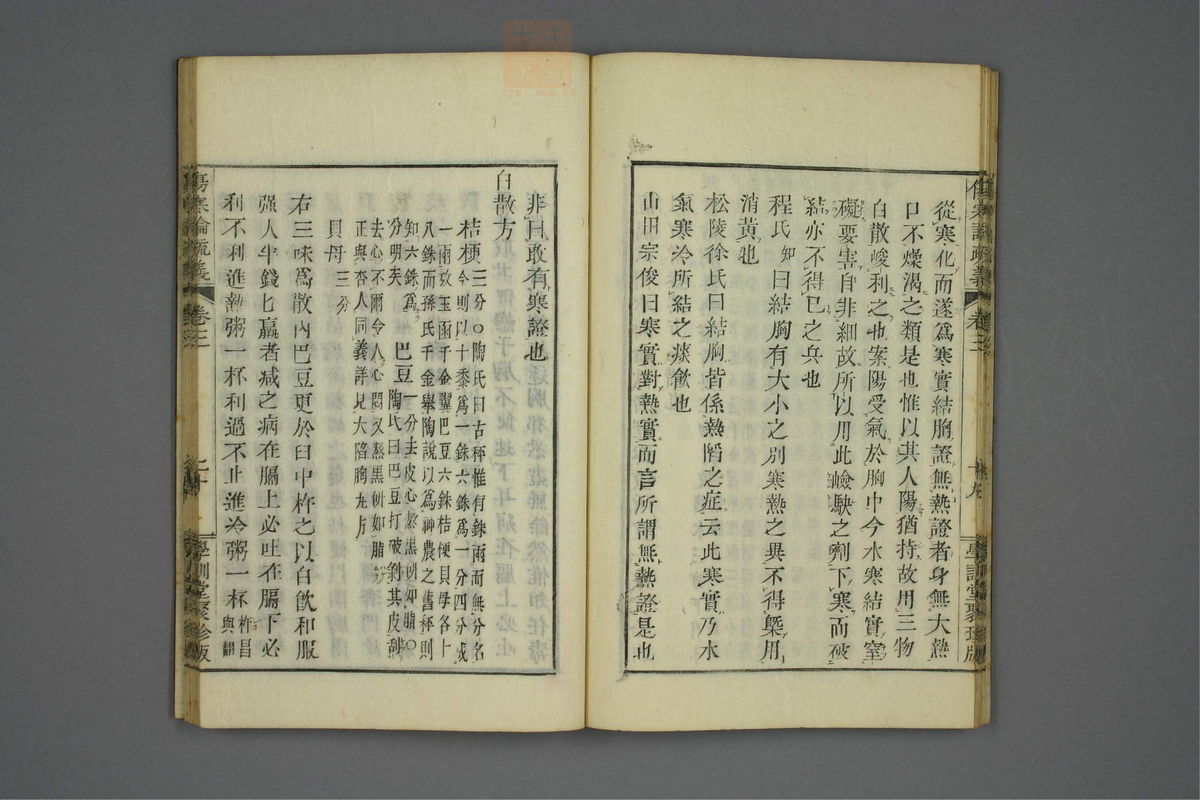 從寒化而遂爲寒實結胸證無熱證者身無大熱
口不燥渴之類是也惟以其人陽猶持故用三物
白散峻利之也案陽受氣於胸中今水寒結實窒
礙要害自非細故所以用此峻駃之劑下寒而破
結亦不得已之兵也
程氏知曰結胸有大小之別寒熱之異不得槩用
消黃也
松陵徐氏曰結胸皆係熱陷之症云此寒實乃水
氣寒冷所結之痰飮也
山田宗俊曰寒實對熱實而言所謂無熱證是也
非曰敢有寒證也
白散方
桔梗三分○陶氏曰古秤惟有銖兩而無分名
今則以十黍爲一銖六銖爲一分四分成
一兩攷玉函千金翼巴豆六銖桔梗貝母各十
八銖而孫氏千金舉陶說以爲神農之舊秤則
知六銖爲
分明矣
巴豆一分去皮心熬黑硏如脂○
陶氏曰巴豆打破剝其皮刮
去心不爾令人心悶又熬黑硏如脂
正與杏人同義詳見大陷胸丸方
貝母三分
右三味爲散內巴豆更於臼中杵之以白飮和服
强人半錢匕羸者減之病在膈上必吐在膈下必
利不利進熱粥一杯利過不止進冷粥一杯
傷寒論疏義
卷三
學訓堂聚珍版